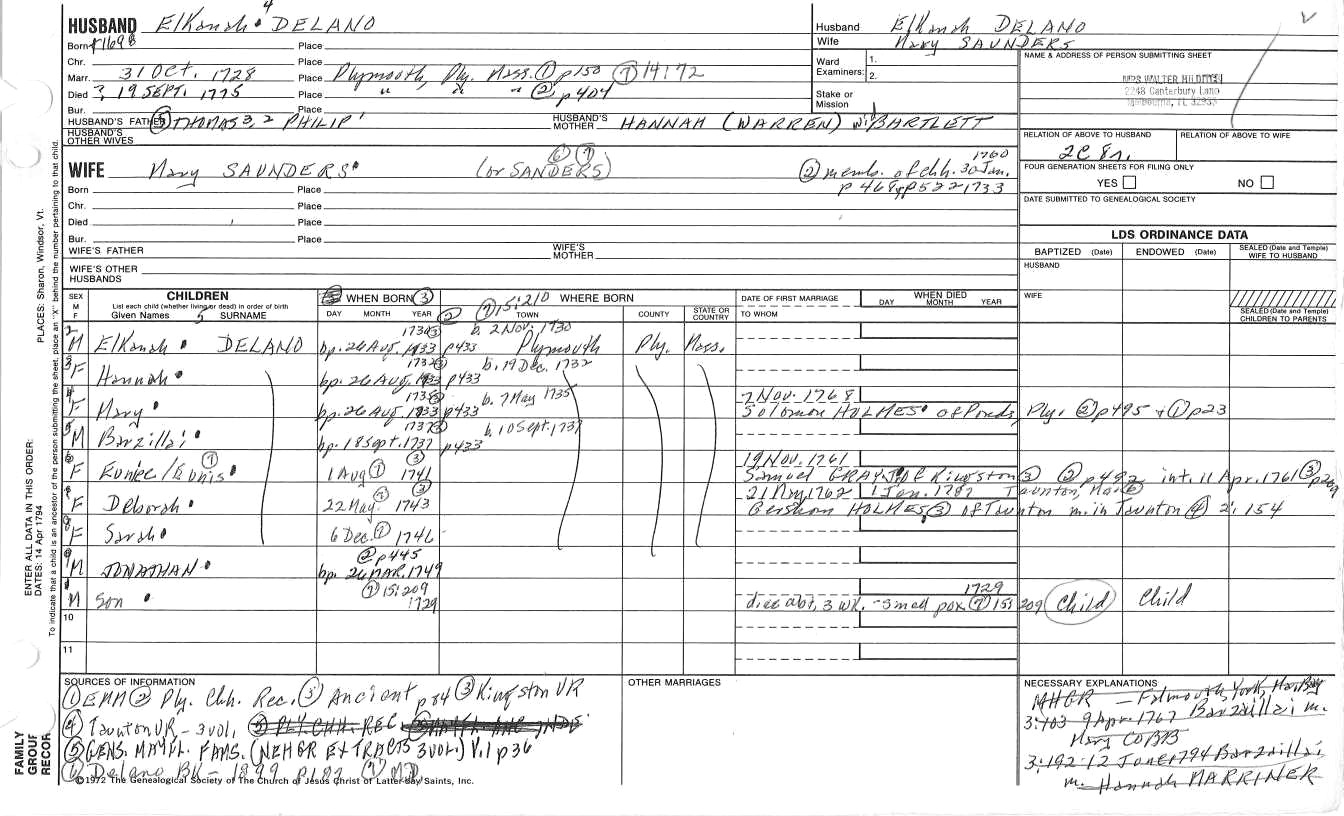 HUSBAND Elkanah 4 DELANO
Husband Elkanah DELANO
Wife Mary SAUNDERS
Born 1698 Place
Chr. Place
Marr. 31 Oct. 1728 Place Plymouth, Ply. Mass. ① p150 ⑦ 14:72
Died ?, 19 SEPT. 1775 Place " " " ② p404
Bur. Place
Ward Examiners: 1. 2.
Stake or Mission
NAME & ADDRESS OF PERSON SUBMITTING SHEET
MRS WALTER
2248 Canterbury Lane
HUSBAND'S FATHER ⑤ THOMAS 3, 2 PHILIP 1
HUSBAND'S MOTHER HANNAH (WARREN) BARTLETT
HUSBAND'S OTHER WIVES
RELATION OF ABOVE TO HUSBAND
2C 8r.
RELATION OF ABOVE TO WIFE
WIFE Mary SAUNDERS (or SANDERS) ⑥ ⑦
② memb. of chh. 30 Jan. 1760
p 468, p522 1733
FOUR GENERATION SHEETS FOR FILING ONLY
YES NO
DATE SUBMITTED TO GENEALOGICAL SOCIETY
Born Place
Chr. Place
Died Place
Bur. Place
WIFE'S FATHER WIFE'S MOTHER
WIFE'S OTHER HUSBANDS
LDS ORDINANCE DATA
BAPTIZED (Date) ENDOWED (Date) SEALED (Date and Temple) WIFE TO HUSBAND
HUSBAND
WIFE
SEALED (Date and Temple) CHILDREN TO PARENTS
SEX M F
CHILDREN
List each child (whether living or dead) in order of birth
Given Names 5 SURNAME
WHEN BORN ③
DAY MONTH YEAR
② ⑦ 15:210 WHERE BORN
TOWN COUNTY STATE OR COUNTRY
DATE OF FIRST MARRIAGE
TO WHOM
WHEN DIED
DAY MONTH YEAR
2 M Elkanah DELANO 1730 ③ bp. 26 Aug. 1733 p433 b. 2 Nov. 1730 Plymouth Ply. Mass.
3 F Hannah 1732 ③ bp. 26 Aug. 1733 p433 b. 19 Dec. 1732
4 F Mary 1735 ③ bp. 26 Aug. 1733 p433 b. 7 May 1735 7 Nov. 1768 Solomon HOLMES of Ponds, Ply. ② p495 & ① p23
5 M Barzillai 1737 ③ bp. 18 Sept. 1737 p433 b. 10 Sept. 1737
6 F Eunice/Eunis ⑦ 1 Aug ⑦ 1741 ③ 19 Nov. 1761 Samuel GRAY of Kingston ③ ② p492 int. 11 Apr. 1761 ③ p209
F Deborah 22 May ⑦ 1743 ③ 1 Jan. 1787 Taunton, Mass ⑥ Gershom HOLMES ③ of Taunton m. in Taunton ④ 2:154
8 F Sarah 6 Dec. ⑦ 1746
9 M JONATHAN ② p445 bp. 26 MAR. 1749
1 M Son ⑦ 15:209 1729 died abt. 3 wk. - small pox ⑦ 15:209 1729 Child Child
10
11
SOURCES OF INFORMATION
① EMM ② Ply. Chh. Rec. ③ Ancient p84 ③ Kingston VR
④ Taunton VR - 3 vol. ⑤ PLY. CHH. REC
⑤ GENS. MAYFL. FAMS. (NEHGR EXTRACTS 3 vol.) V.1 p36
⑥ Delano BK - 1899 p189 ⑦ MD
OTHER MARRIAGES
NECESSARY EXPLANATIONS
MHGR - Falmouth, York, Mar
3:103 9 Apr. 1767 Barzaillai m.
Mary COBB
3:192 12 June 1794 Barzaillai
m. Hannah MARRINER
©1972 The Genealogical Society of The Church of Jesus Christ of Latter-day Saints, Inc.
FAMILY GROUP RECORD
ENTER ALL DATA IN THIS ORDER:
DATES: 14 Apr 1794
PLACES: Sharon, Windsor, Vt.
To indicate that a child is an ancestor of the person submitting the sheet, place an "X" behind the number pertaining to that child.